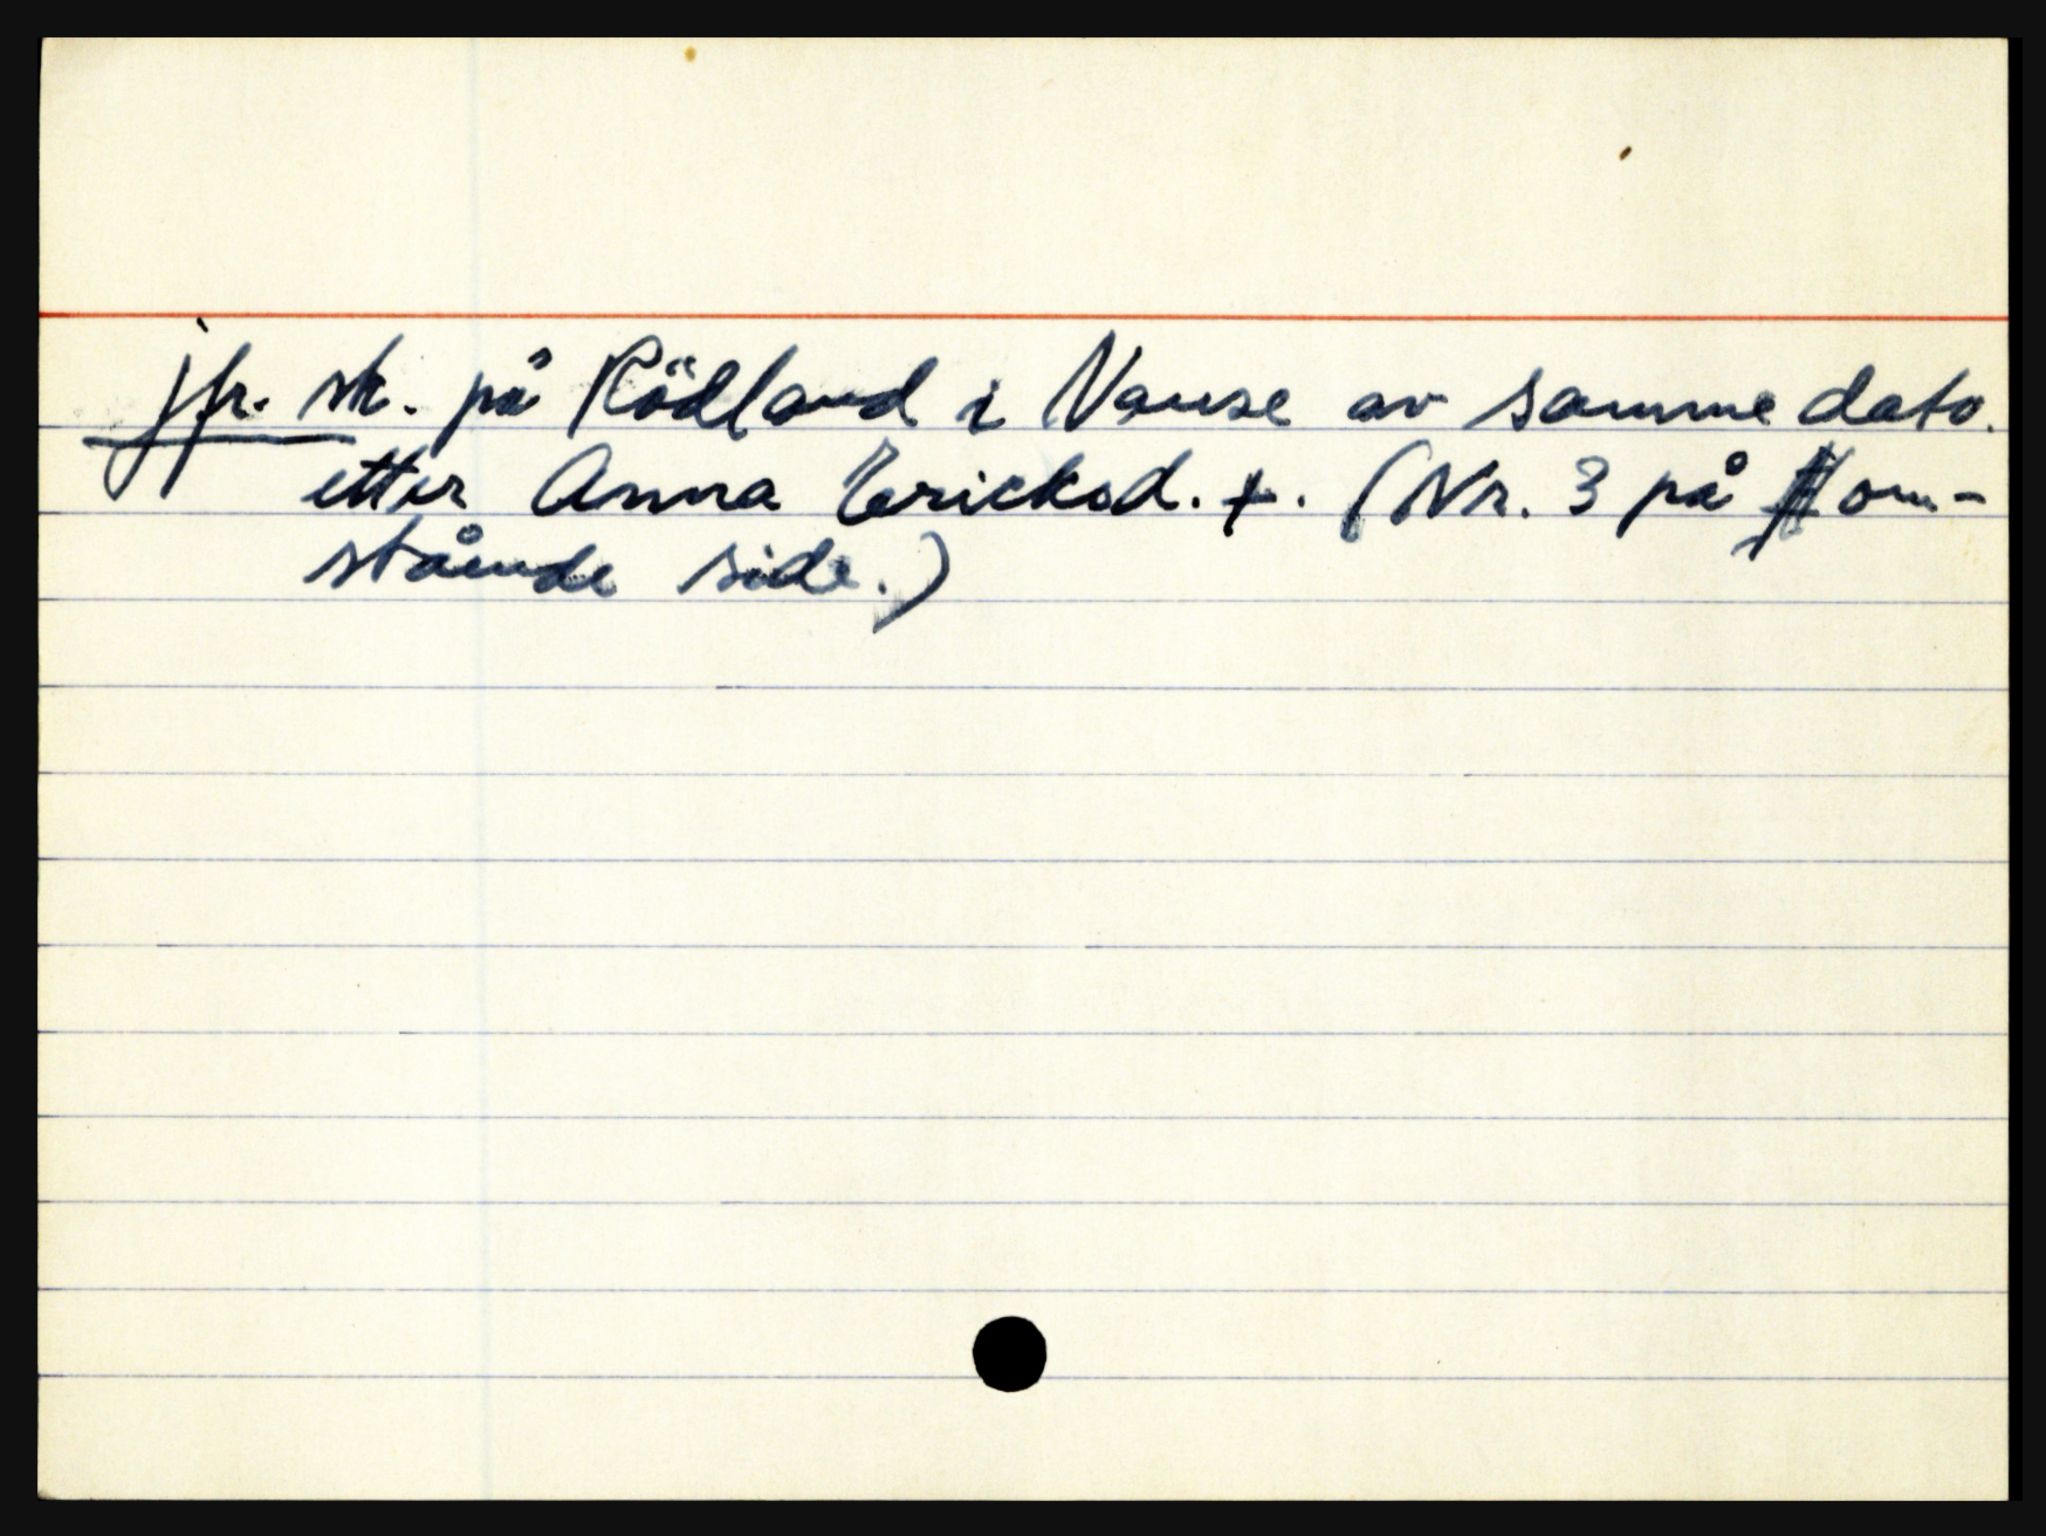 jfr. sk. på Rödland i Vanse av samme dato.
etter Anna Ericksd. +. (Nr. 3 på om-
stående side.)